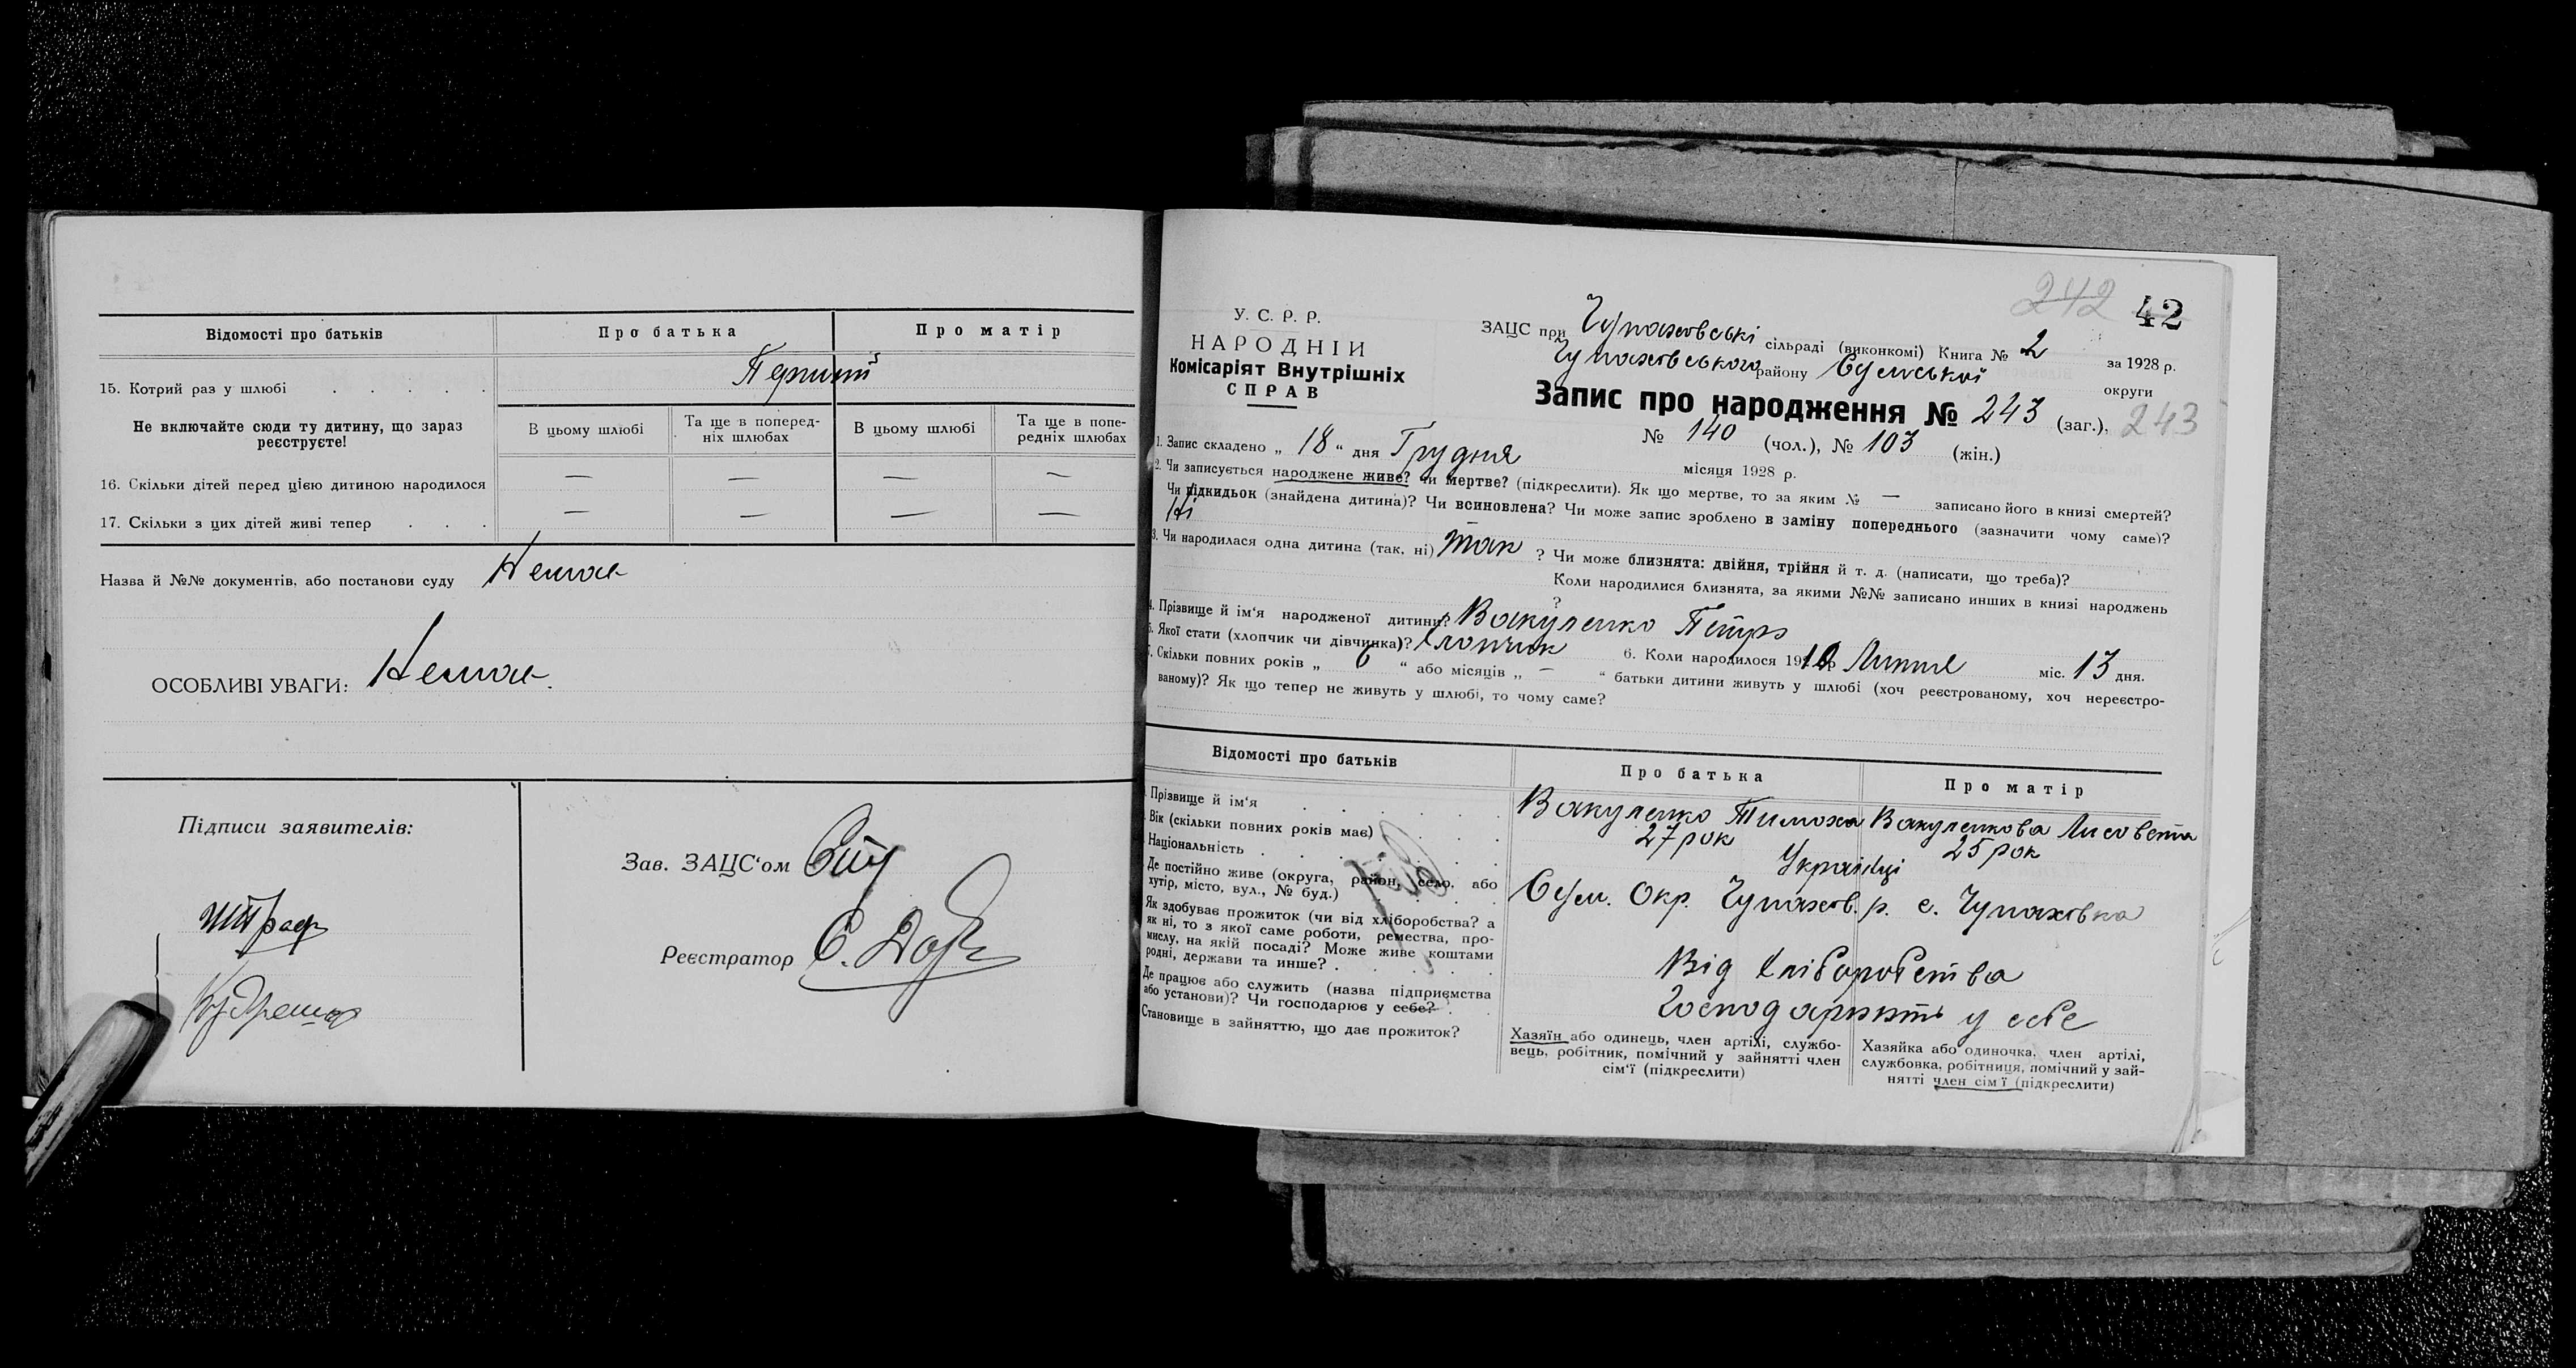 Відомості про батьків
Про батька
Про матір
15. Котрий раз у шлюбі
Перший
Не включайте сюди ту дитину, що зараз реєструєте!
В цьому шлюбі
Та ще в поперед-
ніх шлюбах
В цьому шлюбі
Та ще в попе-
редніх шлюбах
16. Скільки дітей перед цією дитиною народилося — — — —
17. Скільки з цих дітей живі тепер — — — —
Назва й №№ документів, або постанови суду Немає
ОСОБЛИВІ УВАГИ: Немає.
Підписи заявителів:
Зав. ЗАЦС'ом
Реєстратор
242 42
У. С. Р. Р.
НАРОДНІЙ
Комісаріят Внутрішніх
СПРАВ
ЗАЦС при Чупаховські сільраді (виконкомі) Книга № 2 за 1928 р.
Чупаховського району Сумської округи
Запис про народження № 243 (заг.), 243
№ 140 (чол.), № 103 (жін.)
1. Запис складено „ 18 “ дня Грудня місяця 1928 р.
2. Чи записується народжене живе? чи мертве? (підкреслити). Як що мертве, то за яким № — записано його в книзі смертей?
Чи підкидьок (знайдена дитина)? Чи всиновлена? Чи може запис зроблено в заміну попереднього (зазначити чому саме)?
Ні
3. Чи народилася одна дитина (так, ні) так ? Чи може близнята: двійня, трійня й т. д. (написати, що треба)?
Коли народилися близнята, за якими №№ записано инших в книзі народжень
?
4. Прізвище й ім'я народженої дитини? Вакуленко Петро
5. Якої стати (хлопчик чи дівчинка)? Хлопчик 6. Коли народилося Липня міс. 13 дня.
Скільки повних років „ 6 “ або місяців „ — “ батьки дитини живуть у шлюбі (хоч реєстрованому, хоч нереєстро-
ваному)? Як що тепер не живуть у шлюбі, то чому саме?
Відомості про батьків
Про батька
Про матір
Прізвище й ім'я
Вакуленко Тимоха
Вакуленкова Лисовета
Вік (скільки повних років має)
27 рок
25 рок
Національність
Українці
Де постійно живе (округа, район, село, або
хутір, місто, вул., № буд.)
Сум. Окр. Чупахов. р. с. Чупаховка
Як здобуває прожиток (чи від хліборобства? а
як ні, то з якої саме роботи, ремества, про-
мислу, на якій посаді? Може живе коштами
родні, держави та инше?
Від хліборобства
Де працює або служить (назва підприємства
або установи)? Чи господарює у себе?
Господарюють у себе
Становище в зайняттю, що дає прожиток?
Хазяїн або одинець, член артілі, службо-
вець, робітник, помічний у зайнятті член
сім'ї (підкреслити)
Хазяйка або одиночка, член артілі,
службовка, робітниця, помічний у зай-
нятті член сім'ї (підкреслити)